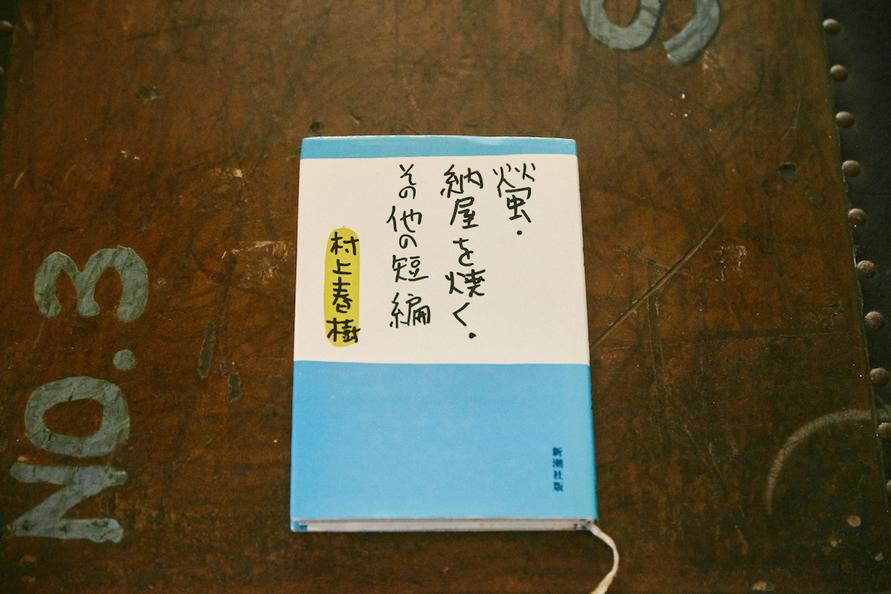 螢・
納屋を焼く・
その他の短編
村上春樹
新潮社版
NO.3
S